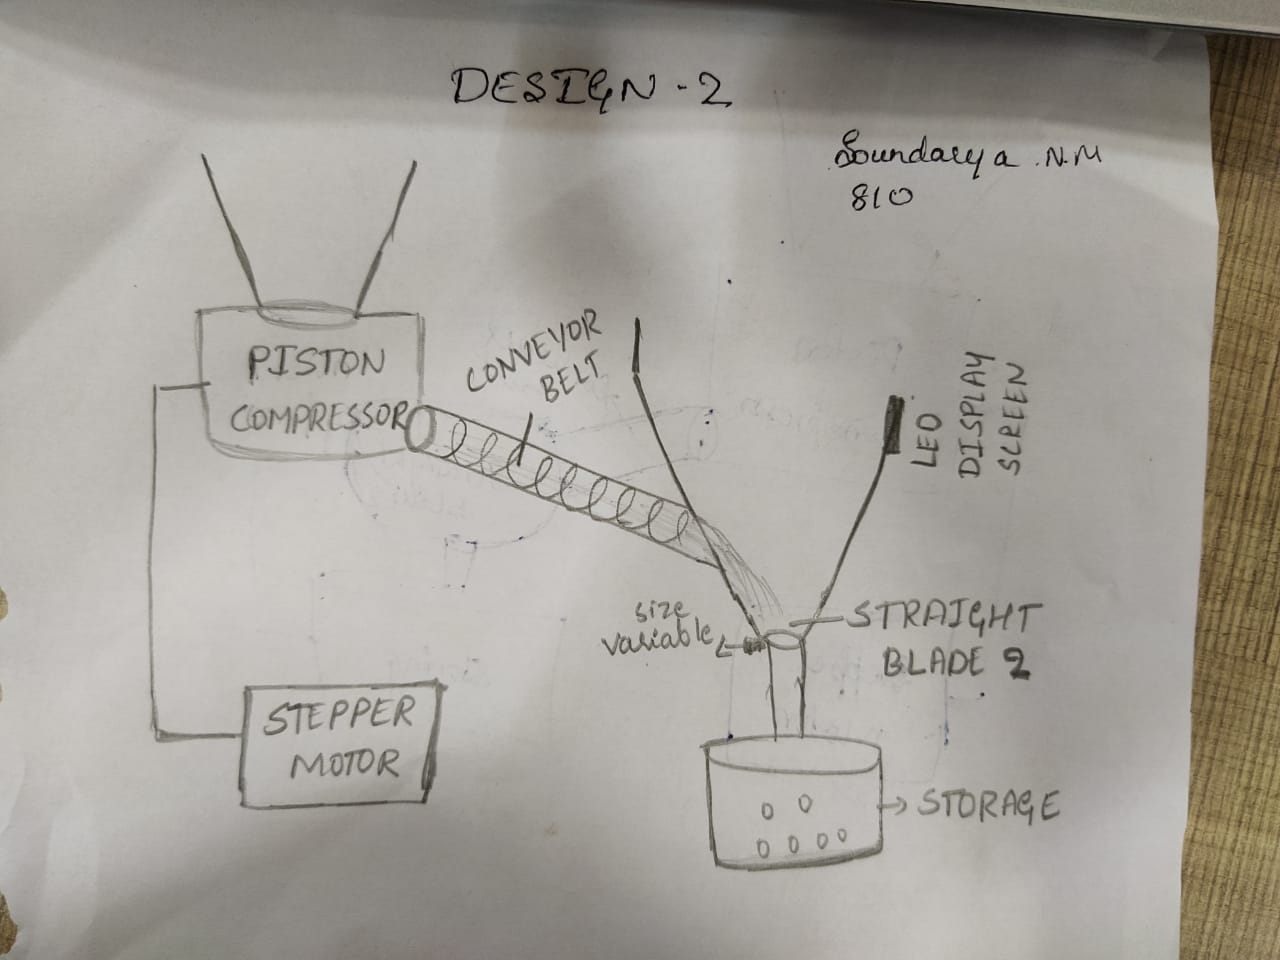 DESIGN - 2
Soundarya .N.M
810
PISTON
COMPRESSOR
CONVEYOR
BELT
LED
DISPLAY
SCREEN
size
variable
STRAIGHT
BLADE 2
STEPPER
MOTOR
STORAGE